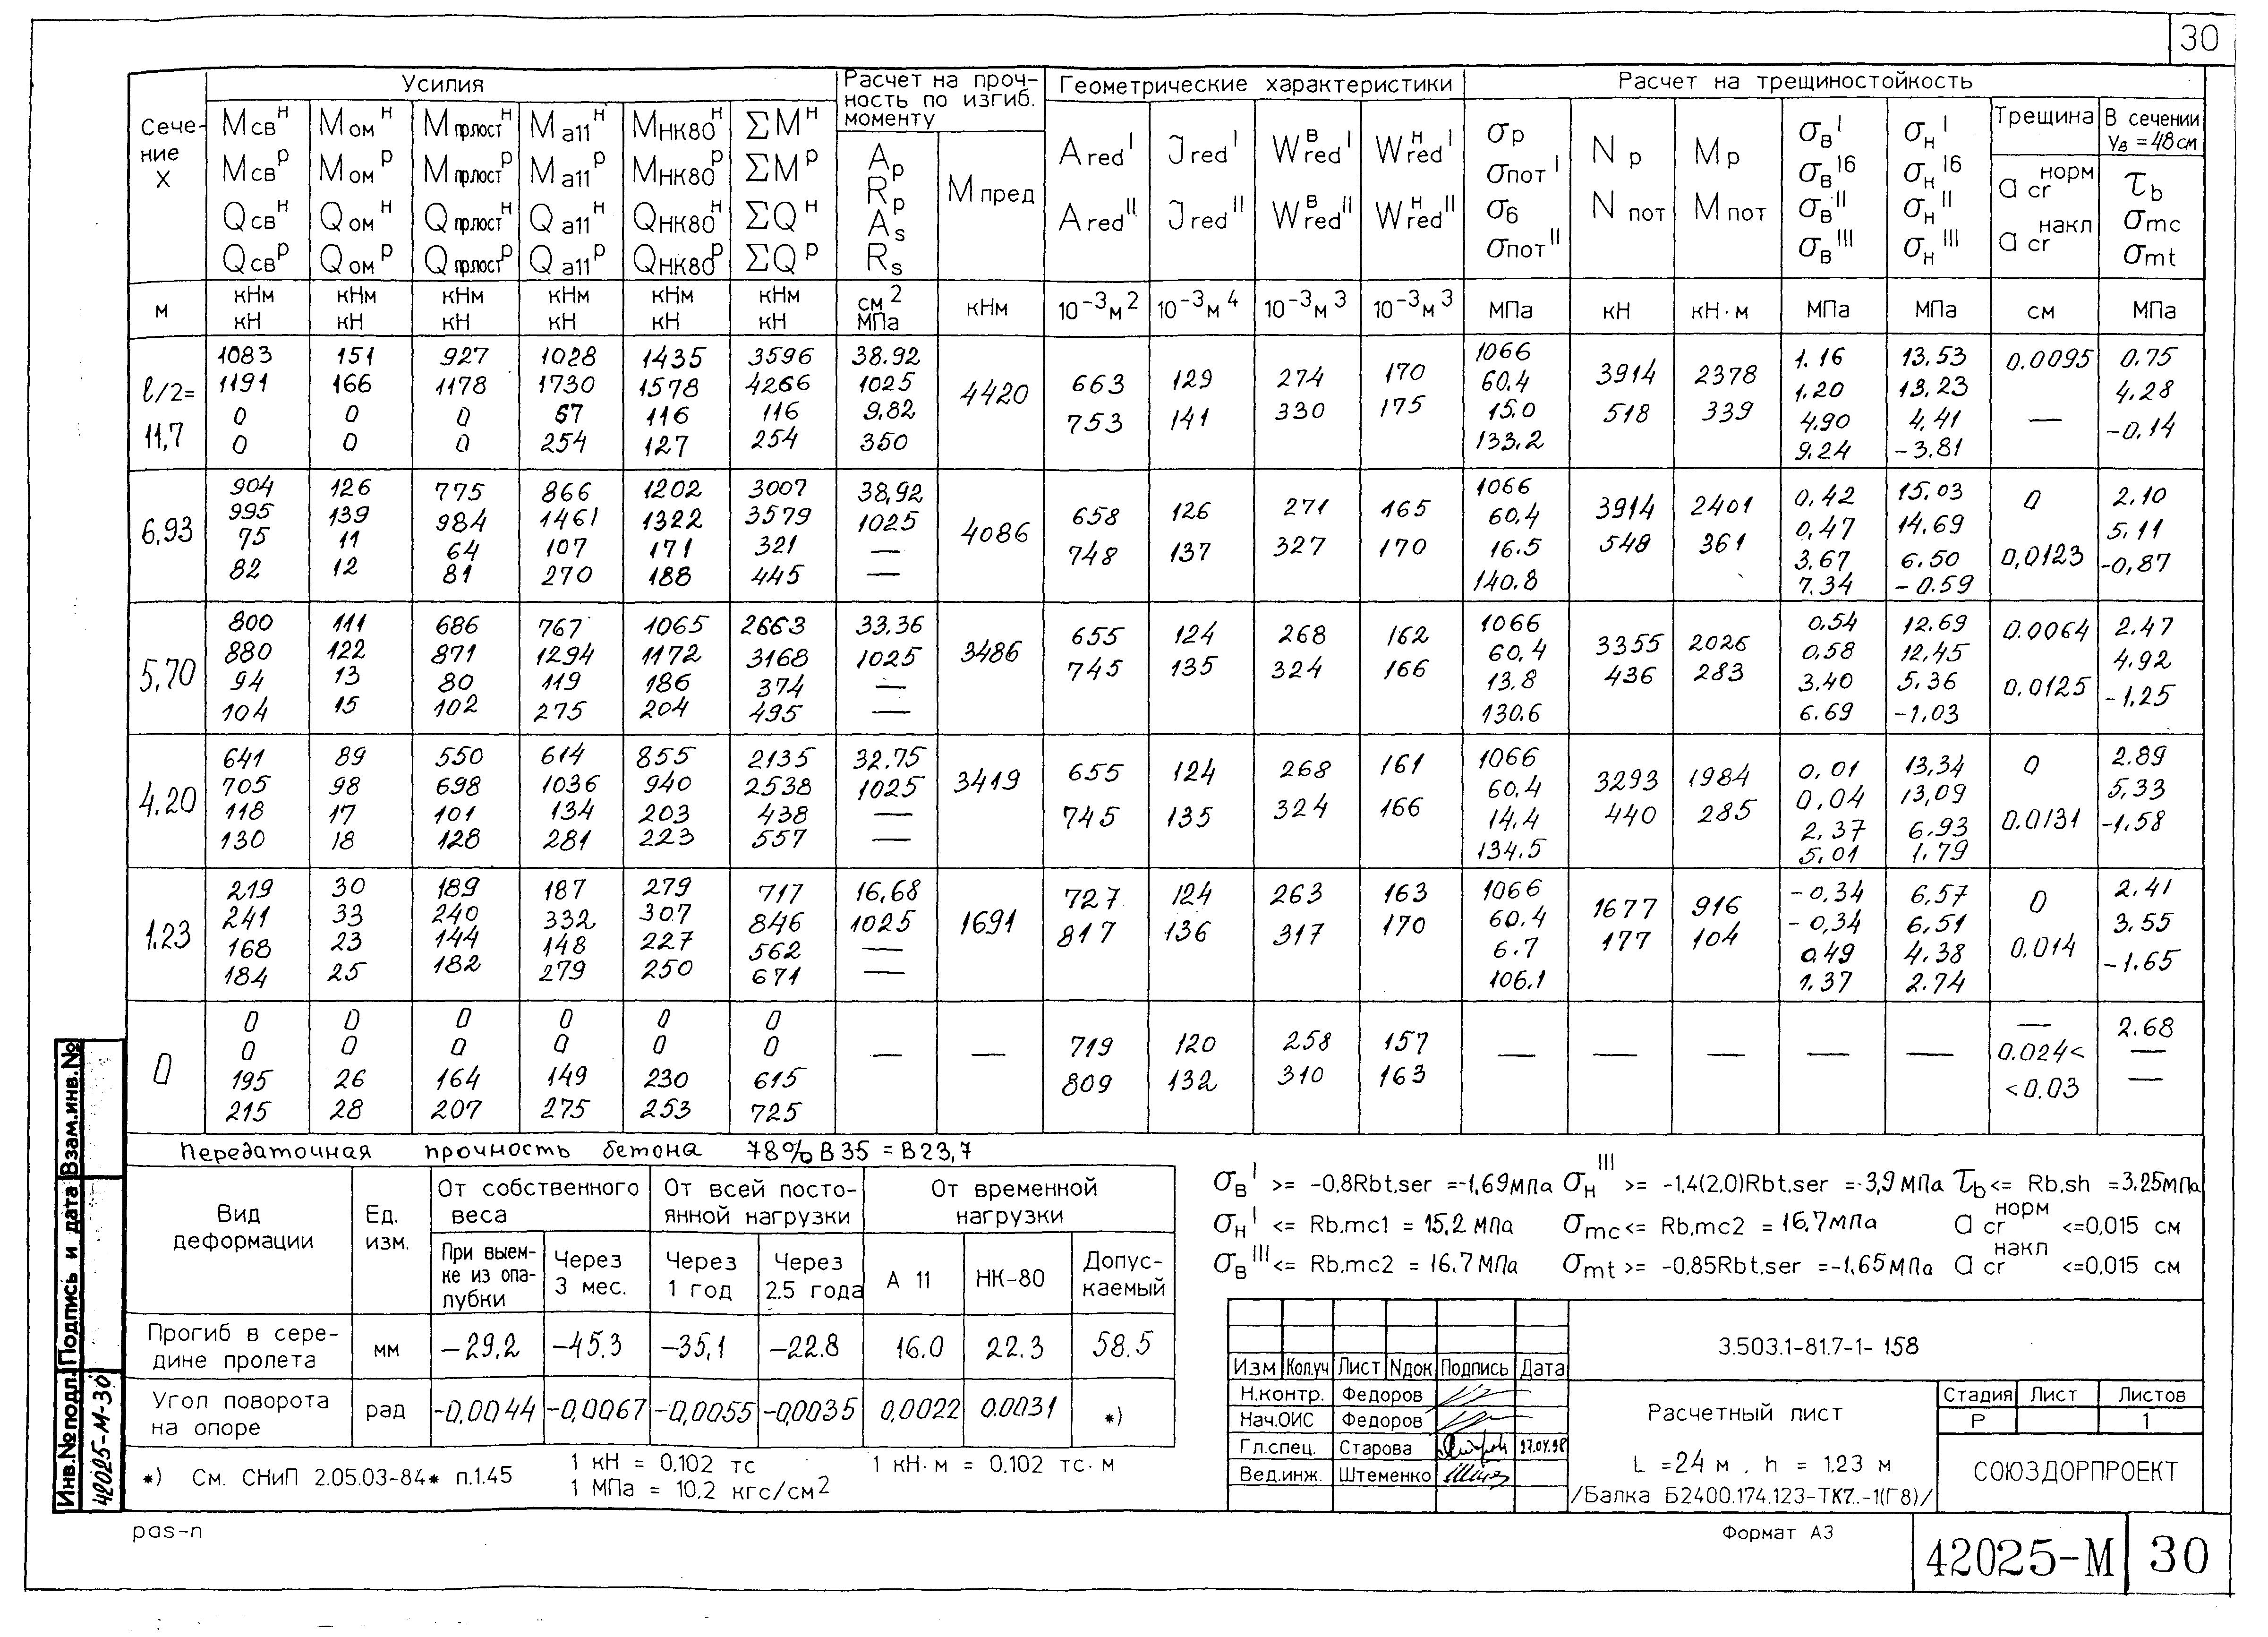 30
Усилия
Расчет на прочность по изгиб. моменту
Геометрические характеристики
Расчет на трещиностойкость
Сечение X
Mсвᴴ Mомᴴ Mпрлостᴴ Mа11ᴴ Mнк80ᴴ ΣMᴴ
Mсвᴾ Mомᴾ Mпрлостᴾ Mа11ᴾ Mнк80ᴾ ΣMᴾ
Qсвᴴ Qомᴴ Qпрлостᴴ Qа11ᴴ Qнк80ᴴ ΣQᴴ
Qсвᴾ Qомᴾ Qпрлостᴾ Qа11ᴾ Qнк80ᴾ ΣQᴾ
Ap Rp As Rs
Mпред
Aredᴵ Jredᴵ Wᴮredᴵ Wᴴredᴵ
Aredᴵᴵ Jredᴵᴵ Wᴮredᴵᴵ Wᴴredᴵᴵ
σp σпотᴵ σб σпотᴵᴵ
Np Nпот
Mp Mпот
σвᴵ σвᴵб σвᴵᴵ σвᴵᴵᴵ
σнᴵ σнᴵб σнᴵᴵ σнᴵᴵᴵ
Трещина
a cr норм
a cr накл
В сечении yв = 48 см
τb σmc σmt
м кНм кН кНм кН кНм кН кНм кН кНм кН кНм кН см² МПа кНм 10⁻³м² 10⁻³м⁴ 10⁻³м³ 10⁻³м³ МПа кН кН·м МПа МПа см МПа
ℓ/2= 11,7
1083 151 927 1028 1435 3596 38.92
1191 166 1178 1730 1578 4266 1025
0 0 0 67 116 116 9.82
0 0 0 254 127 254 350
4420
663 129 274 170
753 141 330 175
1066 60.4 15.0 133.2
3914 2378
518 339
1.16 1.20 4.90 9.24
13.53 13.23 4.41 -3.81
0.0095 —
0.75 4.28 -0.14
6,93
904 126 775 866 1202 3007 38,92
995 139 984 1461 1322 3579 1025
75 11 64 107 171 321 —
82 12 81 270 188 445 —
4086
658 126 271 165
748 137 327 170
1066 60.4 16.5 140.8
3914 2401
548 361
0,42 0,47 3,67 7.34
15.03 14.69 6.50 -0.59
0 0,0123
2.10 5.11 -0,87
5,70
800 111 686 767 1065 2663 33.36
880 122 871 1294 1172 3168 1025
94 13 80 119 186 374 —
104 15 102 275 204 495 —
3486
655 124 268 162
745 135 324 166
1066 60.4 13.8 130.6
3355 2026
436 283
0.54 0.58 3.40 6.69
12.69 12.45 5.36 -1,03
0.0064 0.0125
2.47 4.92 -1.25
4.20
641 89 550 614 855 2135 32.75
705 98 698 1036 940 2538 1025
118 17 101 134 203 438 —
130 18 128 281 223 557 —
3419
655 124 268 161
745 135 324 166
1066 60.4 14.4 134.5
3293 1984
440 285
0,01 0,04 2.37 5.01
13,34 13,09 6.93 1.79
0 0.0131
2.89 5,33 -1.58
1.23
219 30 189 187 279 717 16,68
241 33 240 332 307 846 1025
168 23 144 148 227 562 —
184 25 182 279 250 671 —
1691
727 124 263 163
817 136 317 170
1066 60.4 6.7 106.1
1677 916
177 104
-0,34 -0,34 0,49 1.37
6,57 6,51 4.38 2.74
0 0.014
2.41 3.55 -1.65
0
0 0 0 0 0 0
0 0 0 0 0 0
195 26 164 149 230 615
215 28 207 275 253 725
— —
719 120 258 157
809 132 310 163
— — — — —
— 0.024< <0.03
2.68 — —
Передаточная прочность бетона 78% В35 = В23,7
Вид деформации
Ед. изм.
От собственного веса
От всей постоянной нагрузки
От временной нагрузки
При выемке из опалубки
Через 3 мес.
Через 1 год
Через 2.5 года
А 11
НК-80
Допускаемый
Прогиб в середине пролета мм -29.2 -45.3 -35,1 -22.8 16.0 22.3 58.5
Угол поворота на опоре рад -0,0044 -0,0067 -0,0055 -0,0035 0,0022 0.0031 *)
*) См. СНиП 2.05.03-84* п.1.45
1 кН = 0.102 тс
1 МПа = 10.2 кгс/см²
1 кН·м = 0.102 тс·м
σвᴵ >= -0.8Rbt.ser = -1,69 МПа σнᴵᴵᴵ >= -1.4(2.0)Rbt.ser = -3,9 МПа τb <= Rb.sh = 3.25 МПа
σнᴵ <= Rb.mc1 = 15,2 МПа σmc <= Rb.mc2 = 16,7 МПа a cr норм <=0,015 см
σвᴵᴵᴵ <= Rb.mc2 = 16.7 МПа σmt >= -0.85Rbt.ser = -1.65 МПа a cr накл <=0,015 см
Изм Кол.уч Лист Nдок Подпись Дата
Н.контр. Федоров
Нач.ОИС Федоров
Гл.спец. Старова 27.04.98
Вед.инж. Штеменко
3.503.1-81.7-1- 158
Расчетный лист
L = 24 м , h = 1.23 м
/Балка Б2400.174.123-ТК7..-1(Г8)/
Стадия Лист Листов
Р 1
СОЮЗДОРПРОЕКТ
Инв.№ подл. Подпись и дата Взам.инв.№
42025-М-30
pas-n
Формат А3
42025-М 30